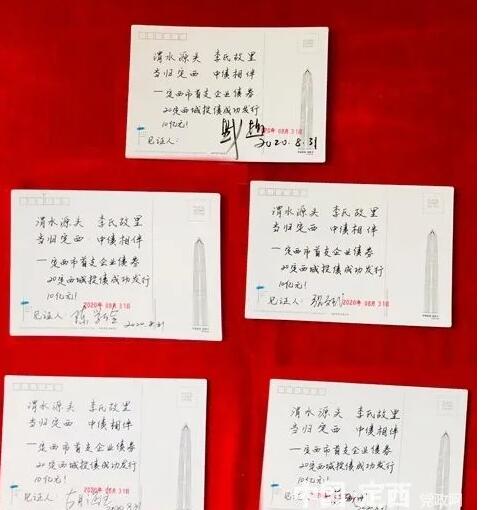 渭水源头 李氏故里
当归定西 中债相伴
一定西市首支企业债券
20定西城投债成功发行
10亿元!
见证人:
2020年 08月 31日
2020.8.31
渭水源头 李氏故里
当归定西 中债相伴
一定西市首支企业债券
20定西城投债成功发行
10亿元!
2020年 08月 31日
见证人:
2020.8.31
渭水源头 李氏故里
当归定西 中债相伴
一定西市首支企业债券
20定西城投债成功发行
10亿元!
2020年 08月 31日
见证人:
渭水源头 李氏故里
当归定西 中债相伴
一定西市首支企业债券
20定西城投债成功发行
10亿元!
见证人:
渭水源头 李氏故里
当归定西 中债相伴
一定西市首支企业债券
20定西城投债成功发行
10亿元!
见证人:
中国·定西 党政网